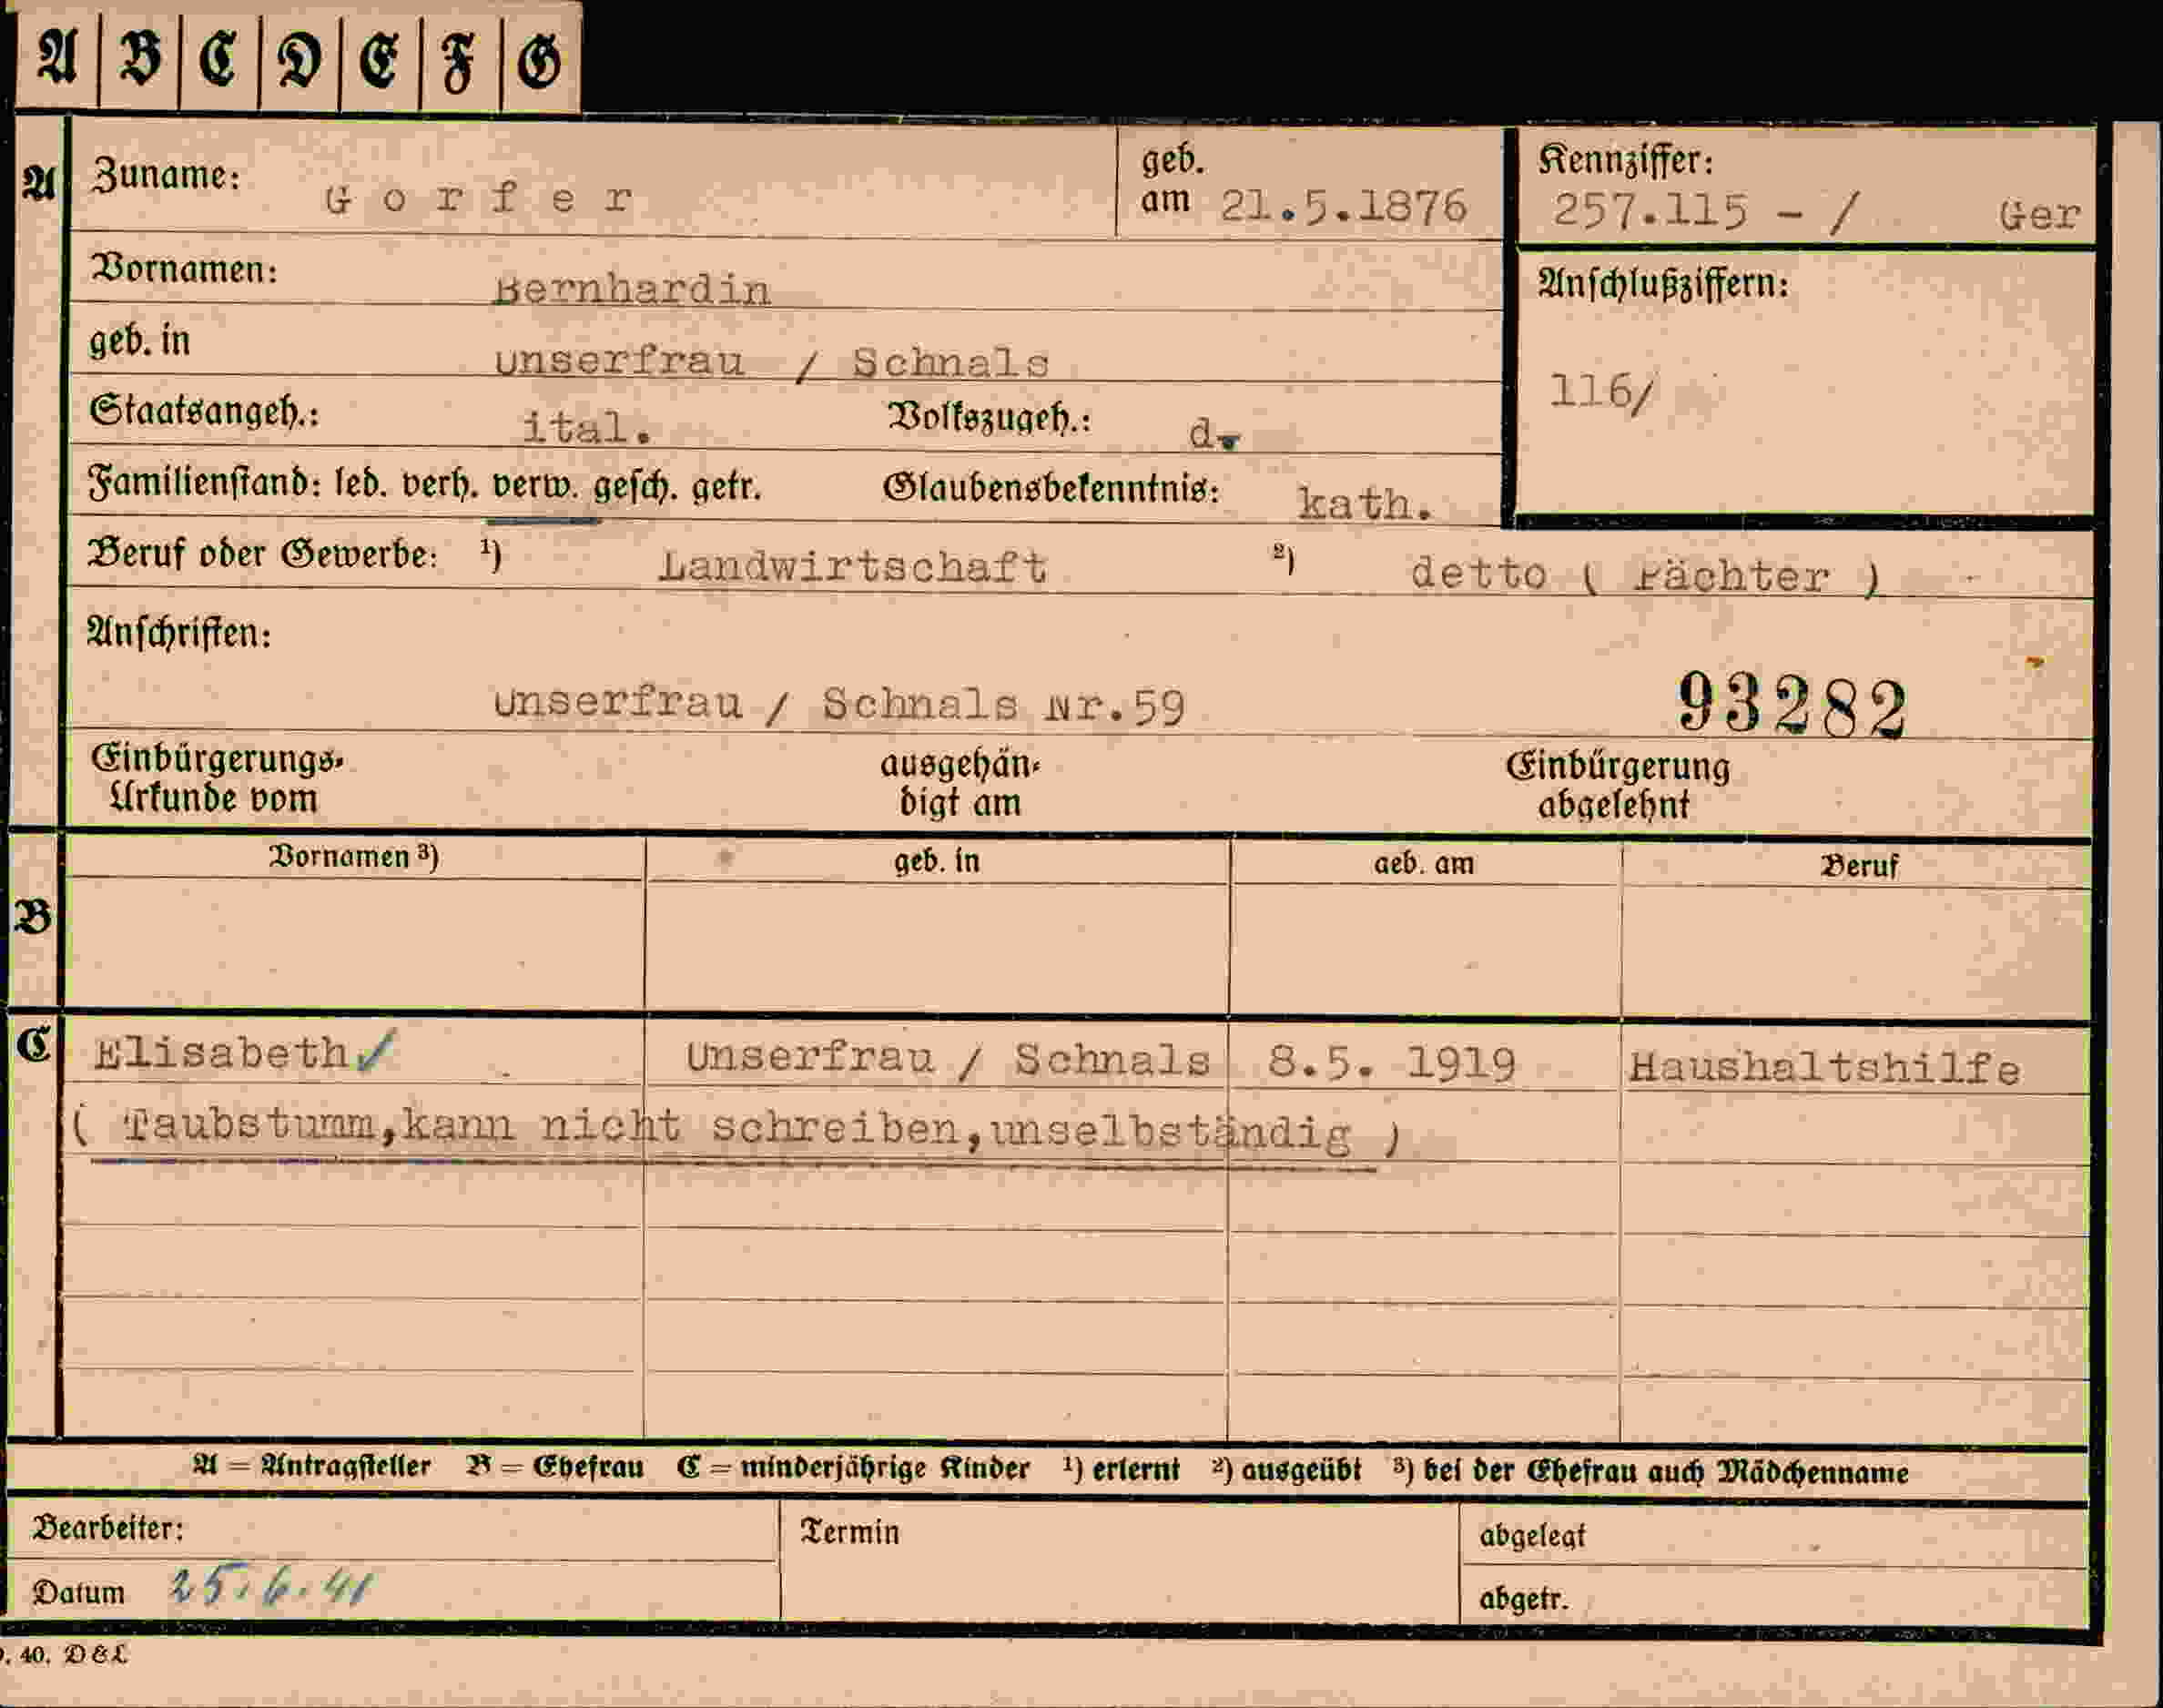 A B C D E F G
A Zuname: Gorfer geb. am 21.5.1876 Kennziffer: 257.115 - / Ger
Vornamen: Bernhardin Anschlußziffern:
geb. in Unserfrau / Schnals 116/
Staatsangeh.: ital. Volkszugeh.: d.
Familienstand: led. verh. verw. gesch. getr. Glaubensbekenntnis: kath.
Beruf oder Gewerbe: 1) Landwirtschaft 2) detto ( Pächter )
Anschriften:
Unserfrau / Schnals Nr.59 93282
Einbürgerungs- ausgehän- Einbürgerung
Urkunde vom digt am abgelehnt
Vornamen 3) geb. in geb. am Beruf
B
C Elisabeth Unserfrau / Schnals 8.5. 1919 Haushaltshilfe
( Taubstumm,kann nicht schreiben,unselbständig )
A = Antragsteller B = Ehefrau C = minderjährige Kinder 1) erlernt 2) ausgeübt 3) bei der Ehefrau auch Mädchenname
Bearbeiter: Termin abgelegt
Datum 25.6.41 abgetr.
40. D&L